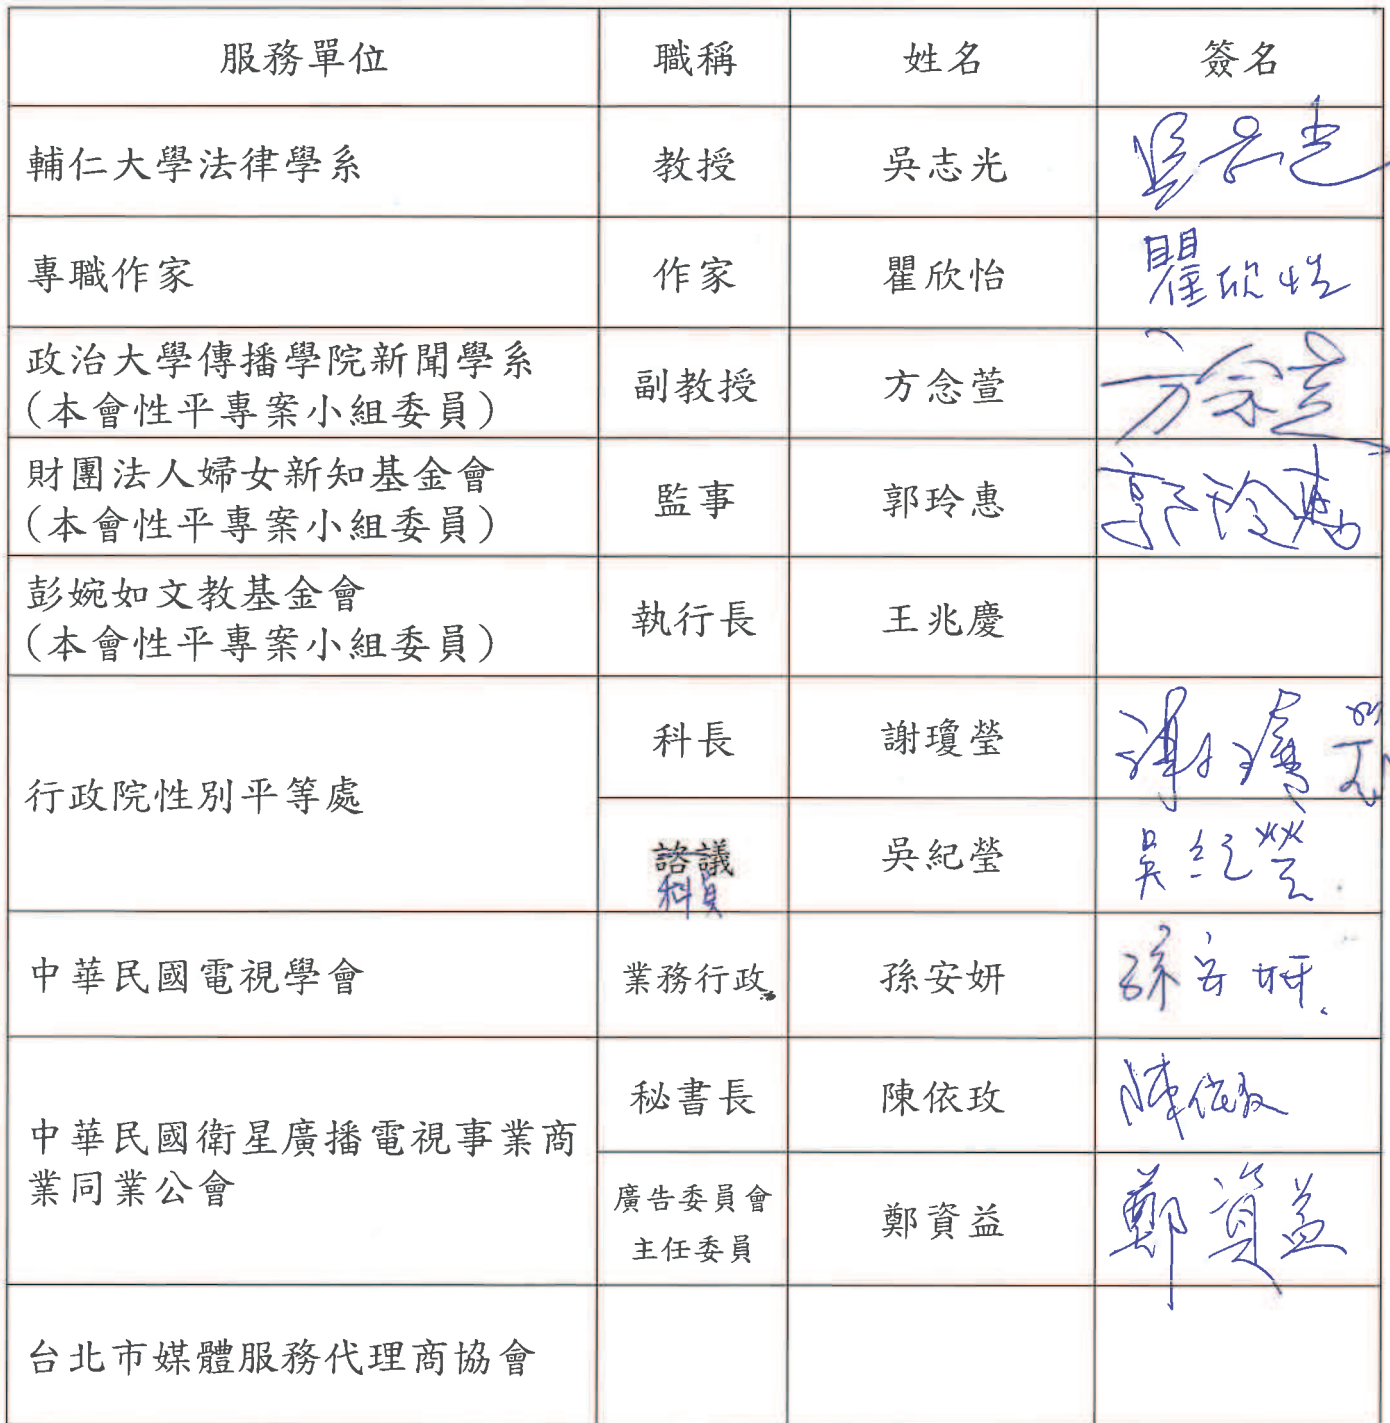 服務單位 職稱 姓名 簽名
輔仁大學法律學系 教授 吳志光 吳志光
專職作家 作家 瞿欣怡 瞿欣怡
政治大學傳播學院新聞學系
(本會性平專案小組委員) 副教授 方念萱 方念萱
財團法人婦女新知基金會
(本會性平專案小組委員) 監事 郭玲惠 郭玲惠
彭婉如文教基金會
(本會性平專案小組委員) 執行長 王兆慶
行政院性別平等處 科長 謝瓊瑩 謝瓊瑩
諮議 吳紀瑩 吳紀瑩
科員
中華民國電視學會 業務行政 孫安妍 孫安妍
中華民國衛星廣播電視事業商
業同業公會 秘書長 陳依玫 陳依玫
廣告委員會
主任委員 鄭資益 鄭資益
台北市媒體服務代理商協會